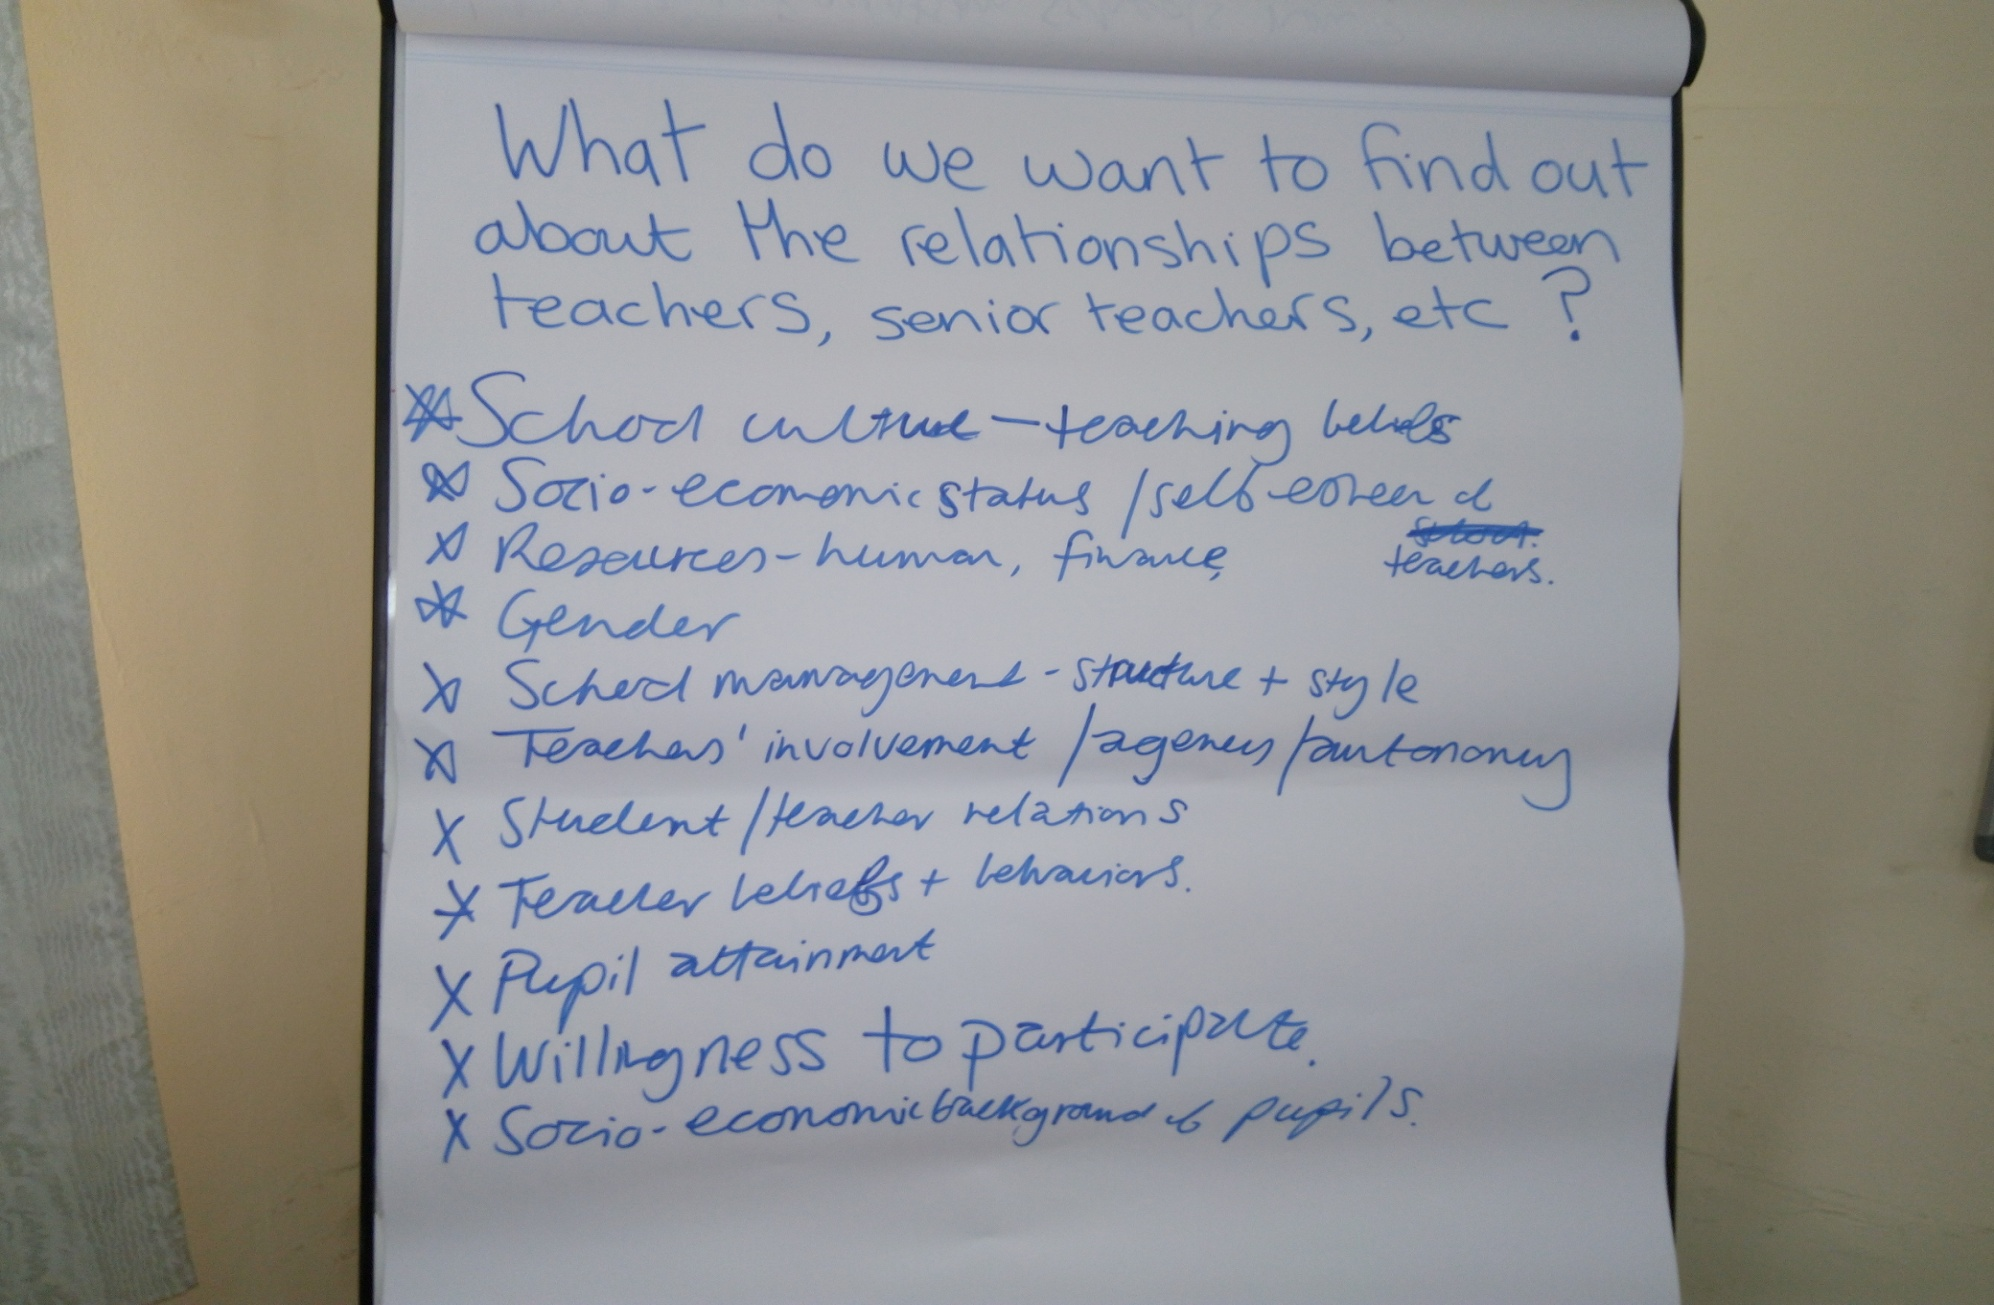 What do we want to find out
about the relationships between
teachers, senior teachers, etc ?
School culture – teaching beliefs
Socio-economic status / self-esteem of
teachers.
Resources - human, finance,
Gender
School management - structure + style
Teachers' involvement / agency / autonomy
Student / teacher relations
Teacher beliefs + behaviors.
Pupil attainment
Willingness to participate.
Socio-economic background of pupils.